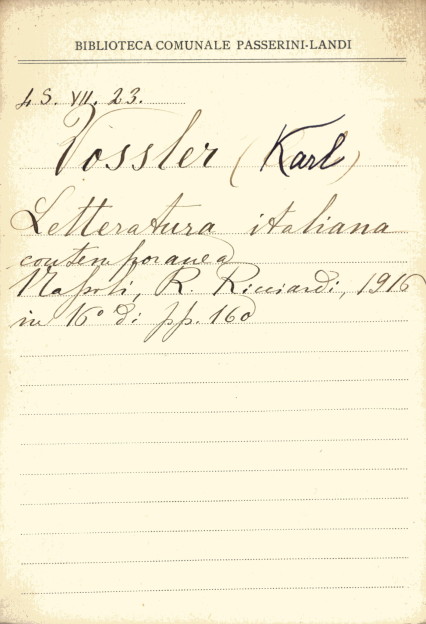 BIBLIOTECA COMUNALE PASSERINI-LANDI
4 S. VII. 23.
Vossler (Karl)
Letteratura italiana
contemporanea
Napoli, R. Ricciardi, 1916
in 16° di pp. 160